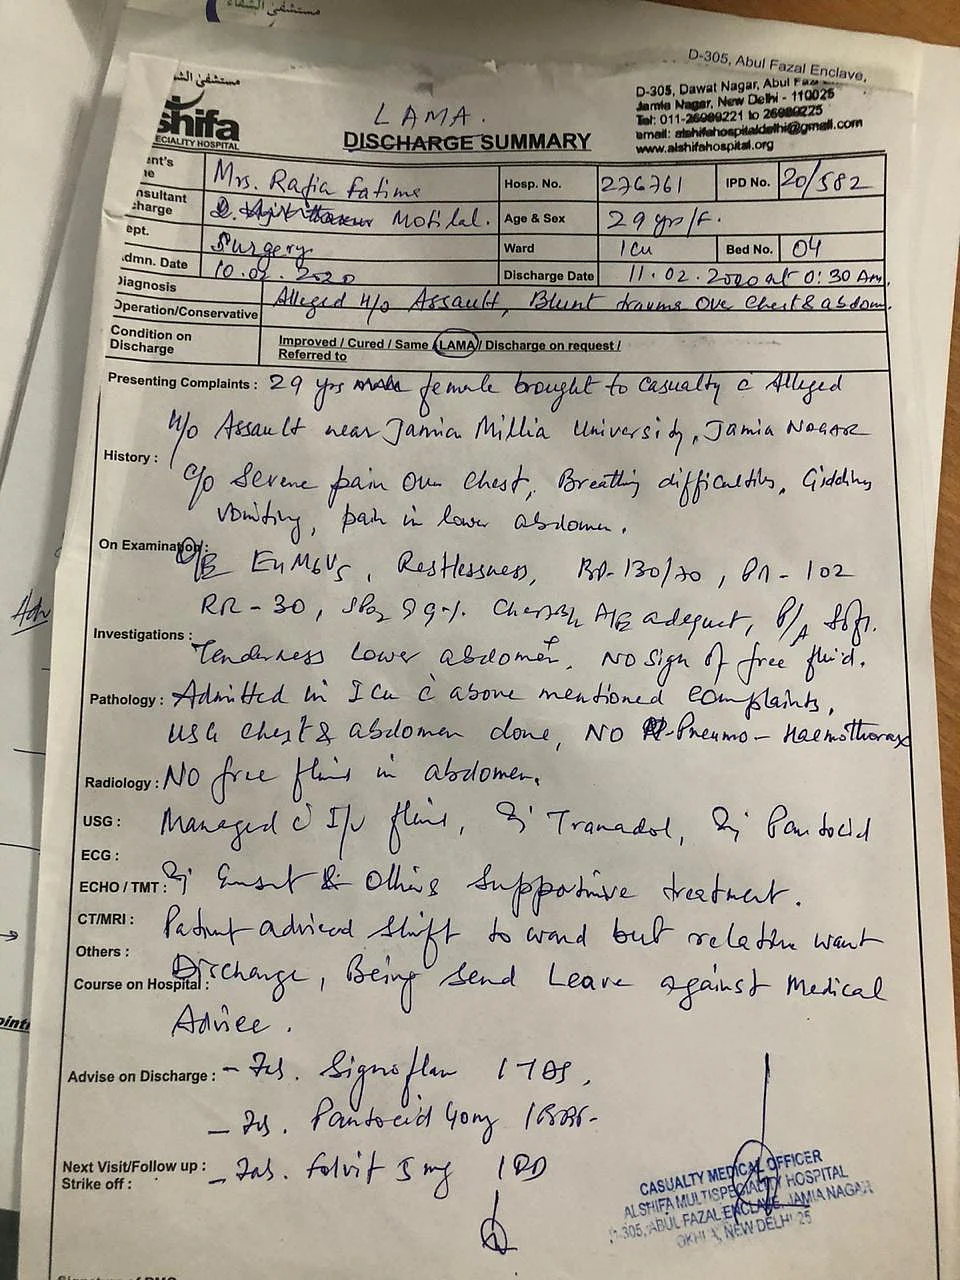 مستشفى الشفاء
D-305, Abul Fazal Enclave,
مستشفى الش
shifa
ECIALITY HOSPITAL
LAMA.
DISCHARGE SUMMARY
D-305, Dawat Nagar, Abul Faz
Jamia Nagar, New Delhi - 110025
Tel: 011-26989221 to 26989225
email: alshifahospitaldelhi@gmail.com
www.alshifahospital.org
ent's
ne Mrs. Rafia Fatima Hosp. No. 276761 IPD No. 20/582
nsultant
charge Motilal. Age & Sex 29 yrs/F.
ept. Surgery Ward ICU Bed No. 04
dmn. Date 10.02.2020 Discharge Date 11.02.2020 at 0:30 Am
Diagnosis Alleged H/o Assault, Blunt trauma over chest & abdom.
Operation/Conservative
Condition on
Discharge Improved / Cured / Same / LAMA / Discharge on request /
Referred to
Presenting Complaints : 29 yrs female brought to casualty c̄ Alleged
H/o Assault near Jamia Millia University, Jamia NAGAR
History :
c/o Severe pain over chest, Breathing difficulties, Giddiness
vomiting, pain in lower abdomen.
On Examination :
O/E E4M6V5, Restlessness, BP-130/70, PR-102
RR-30, SPO2 99%. Chest B/L A/E adequet, P/A Soft.
Investigations :
Tenderness lower abdomen+. NO sign of free fluid.
Pathology : Admitted in ICU c̄ above mentioned complaints,
USG chest & abdomen done, NO Pneumo-Haemothorax
Radiology : NO free fluid in abdomen.
USG : Managed c̄ I/V fluid, Inj Tramadol, Inj Pantocid
ECG :
ECHO / TMT : Inj Emset & Others supportive treatment.
CT/MRI : Patient adviced shift to ward but relative want
Others :
Course on Hospital : Discharge, Being send Leave against Medical
Advice.
ointr
Adv
Advise on Discharge : - Tab. Signoflam 1 TDS,
- Tab. Pantocid 40mg 1
Next Visit/Follow up : - Tab. Folvit 5 mg 1 OD
Strike off :
CASUALTY MEDICAL OFFICER
ALSHIFA MULTISPECIALITY HOSPITAL
D-305, ABUL FAZAL ENCLAVE, JAMIA NAGAR
OKHLA, NEW DELHI 25